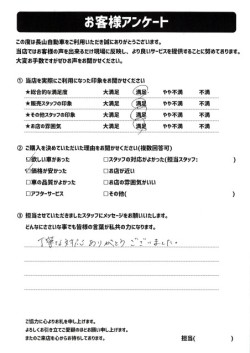 お客様アンケート
この度は長山自動車をご利用いただき誠にありがとうございます。
当店ではお客様の声を出来るだけ現場に反映し、より良いサービスを提供することに努めております。
大変お手数ですがぜひお声をお聞かせください。
① 当店を実際にご利用になった印象をお聞かせください
★総合的な満足度 大満足 満足 やや不満 不満
★販売スタッフの印象 大満足 満足 やや不満 不満
★その他スタッフの印象 大満足 満足 やや不満 不満
★お店の雰囲気 大満足 満足 やや不満 不満
② ご購入を決めていただいた理由をお聞かせください(複数回答可)
☑欲しい車があった □スタッフの対応がよかった(担当スタッフ: )
☑価格が安かった □お店が近い
□車の品質がよかった □お店の雰囲気がいい
□アフターサービス □その他( )
③ 担当させていただきましたスタッフにメッセージをお願いいたします。
どんなにささいな事でも皆様の言葉が私共の力になります。
丁寧な対応ありがとうございました。
ご協力に心よりお礼を申し上げます。
よろしくお引き立てご愛顧のほどお願い申し上げます。
またのご来店を心からお待ちしております。
担当( )